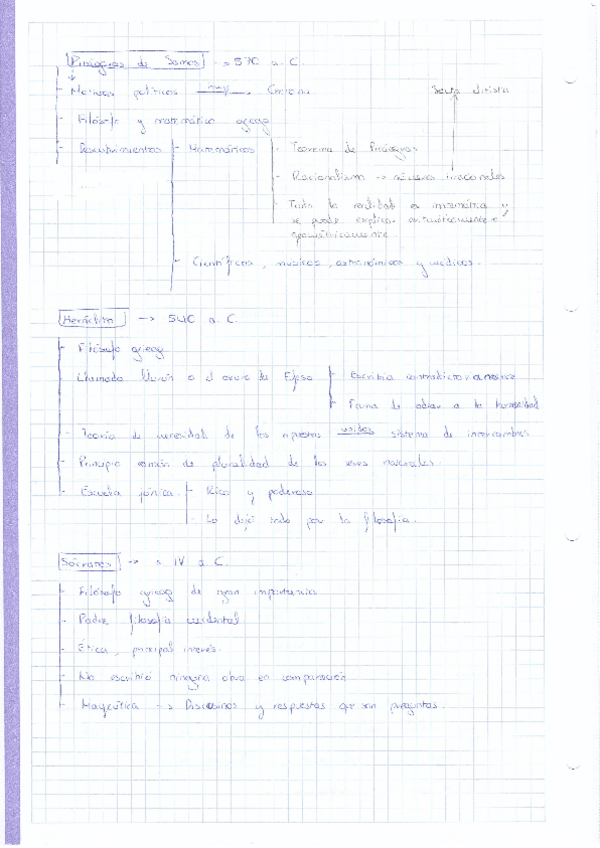 Pitágoras de Samos → 570 a. C.
Motivos políticos → Crotona
Secta divista
Filósofo y matemático griego
Descubrimientos
Matemáticos
Teorema de Pitágoras
Racionalismo → números irracionales
Toda la realidad es matemática y
se puede explicar aritméticamente e
geométricamente.
Científicos, músicos, astronómicos y médicos.
Heráclito → 540 a. C.
Filósofo griego
Llamado o el oscuro de Éfeso
Escribía contradictoriamente
Fama de odiar a la humanidad
Teoría de de los opuestos unidos sistema de intercambios
Principio común de pluralidad de los seres naturales.
Escuela jónica
Rico y poderoso
Lo dejó todo por la filosofía.
Sócrates → s. IV a. C.
Filósofo griego de gran importancia
Padre filosofía occidental
Ética, principal interés.
No escribió ninguna obra en comparación
Mayeútica → Discusiones y respuestas que son preguntas.